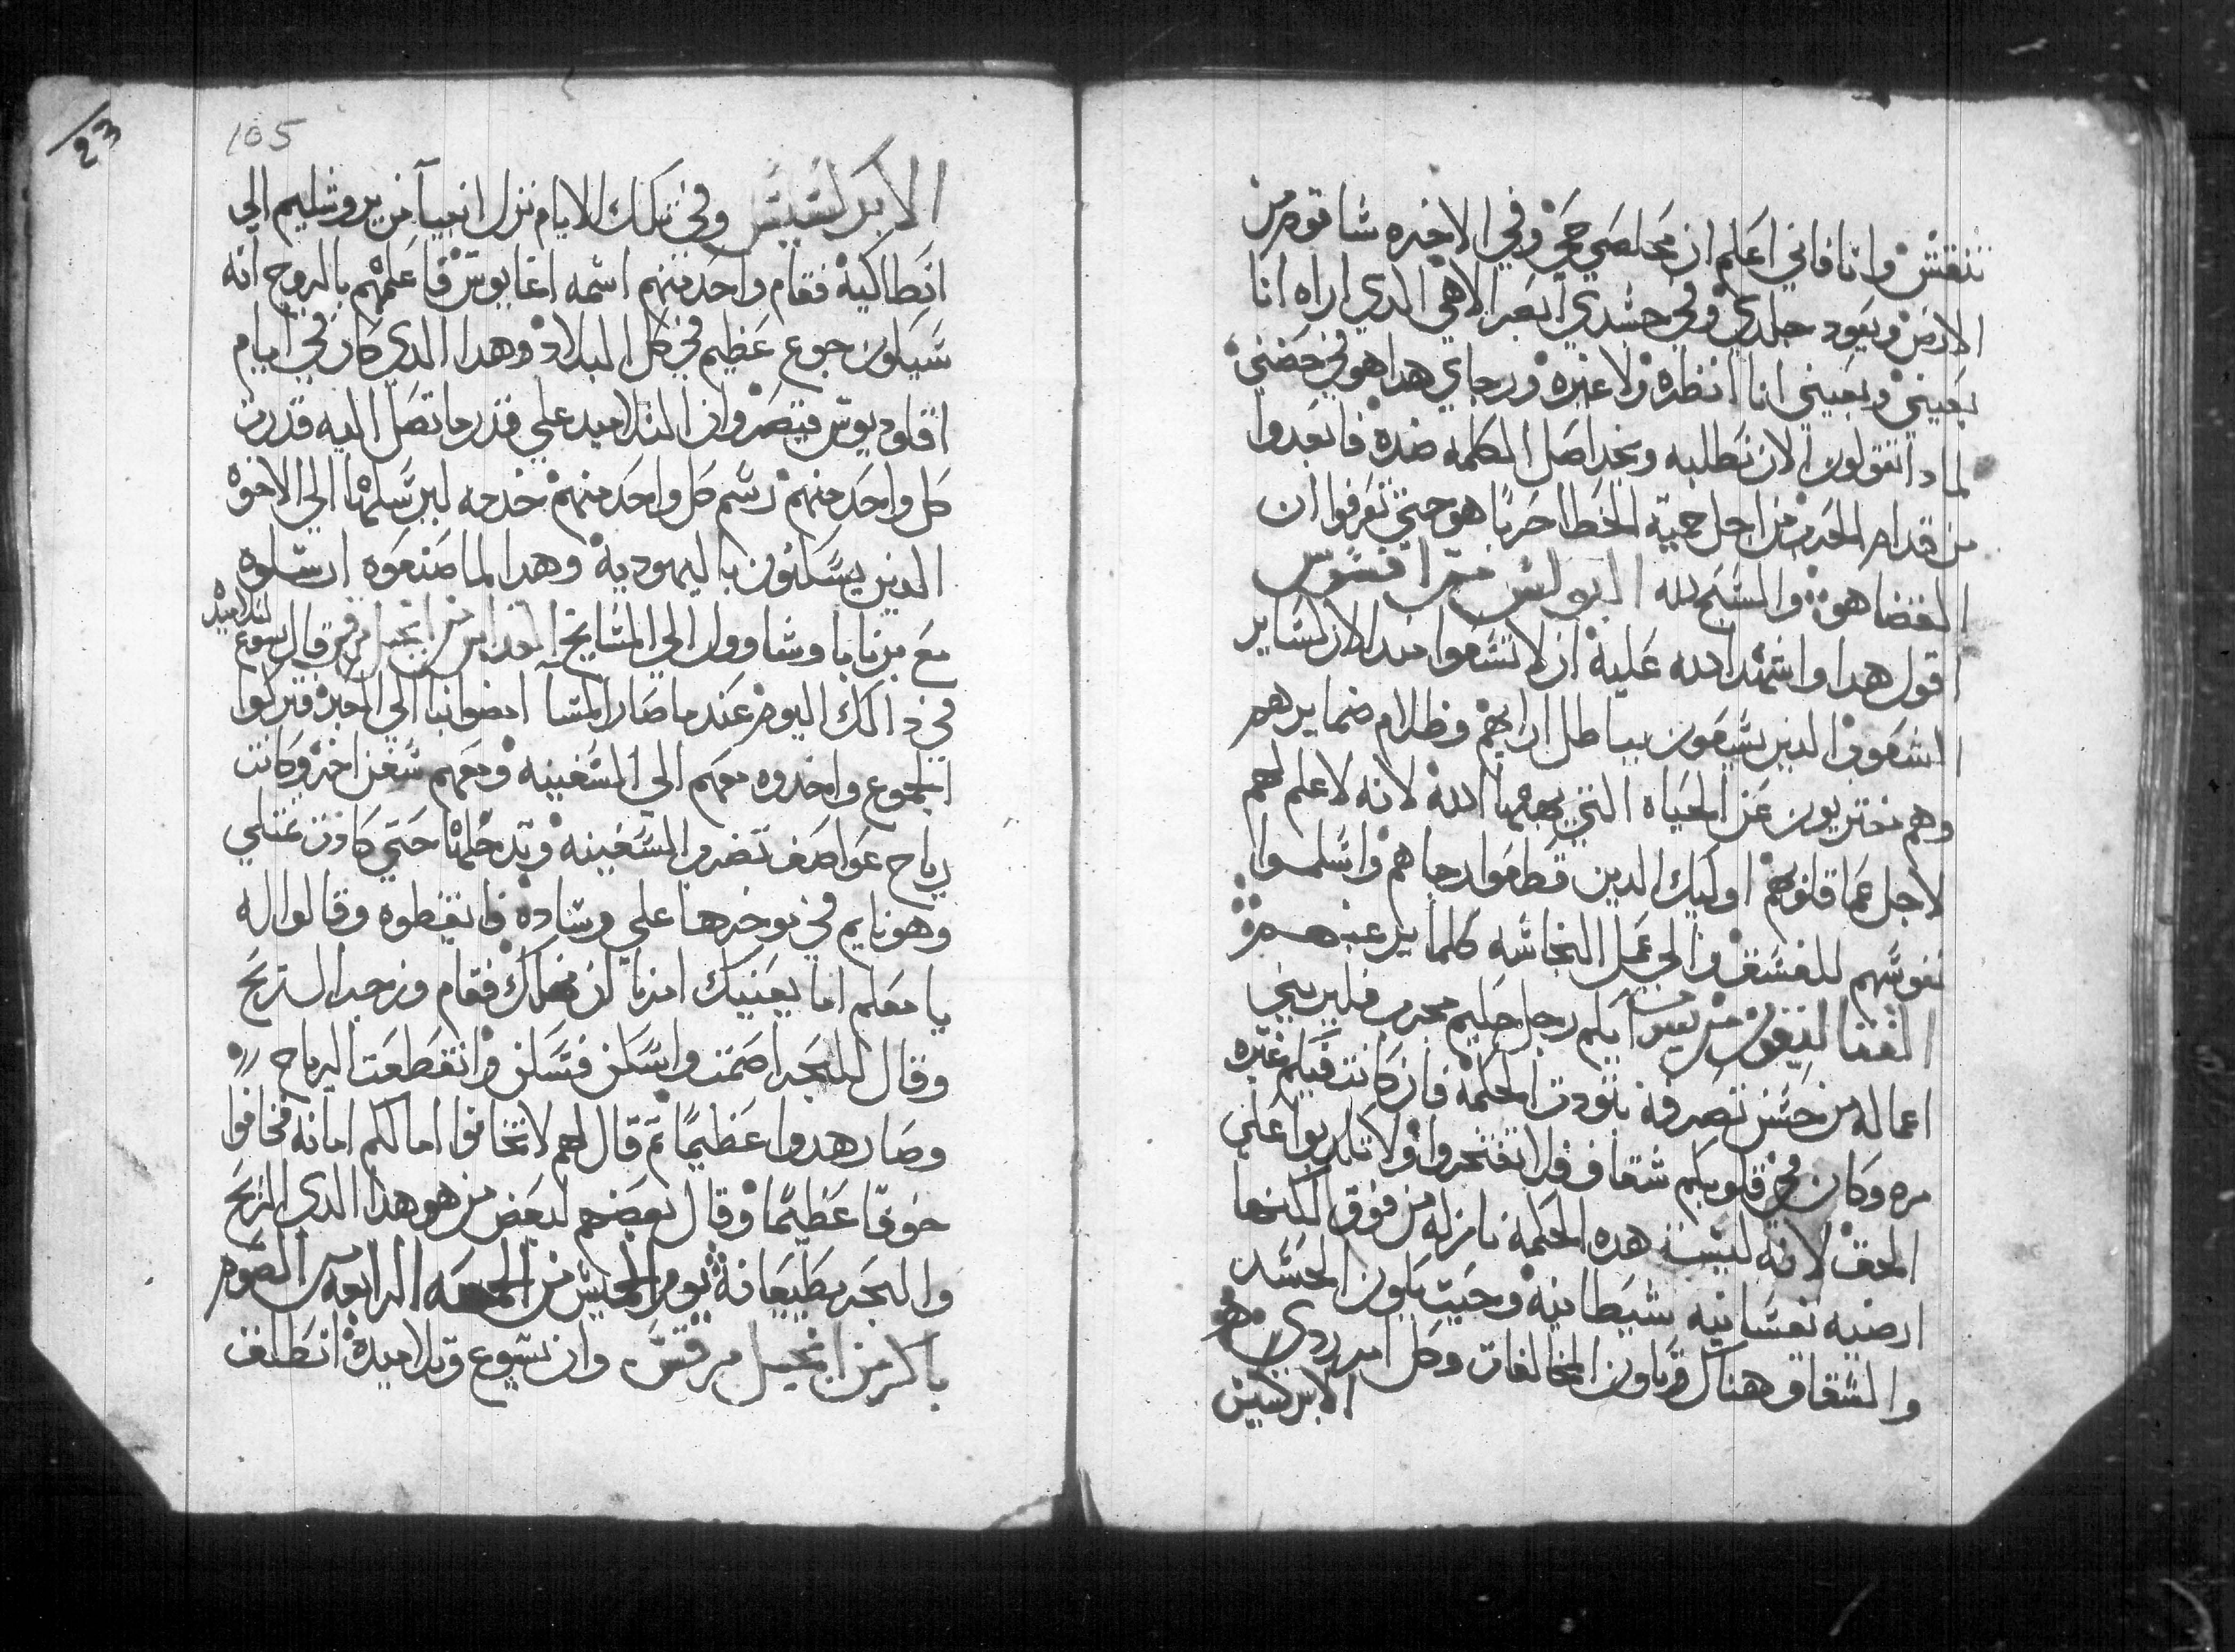 تنقش وانا فاني اعلم ان مخلصي حي وفي الاخره شاقوم من
الارض ويعود جلدي وفي جسدي ابصر الاهي الدي اراه انا
بعيني وبعيني انا انظره ولا غيره ورجاي هدا هو في حضني
لمادا تقولون الان نطلبه ونجد اصل الكلمه ضده فابعدوا
من قدام الحرب من اجل حمية الخطا حربا هو حتي تعرفوا ان
القضا هو والسبح لله البولس من افسوس
اقول هدا واشهد الله عليه ان لا تسعوا مند الان كساير
الشعوب الدين يسعون بباطل ارايهم وظلام ضمايرهم
وهم مغتربون عن الحياه التي يهبها الله لانه لا علم لهم
لاجل عما قلوبهم اوليك الدين قطعوا رجاهم واسلموا
نفوسهم للفسق والي عمل النجاسه كلما يرغبهم
القتاليقون من يعقوب ايكم رجل حكيم مجرب فليريني
اعماله من حسن تصرفه بتودت الحكمة فان كانت فيكم غيره
مره وكان في قلوبكم شقاق فلا تفتخروا ولا تكدبوا علي
الحق لانه ليست هده الحكمة نازله من فوق لكنها
ارضيه نفسانيه شيطانيه وحيت يكون الحسد
والشقاق هناك تكون المخالفات وكل امر ردي
الابركسيس
105
23
الابركسيس وفي تلك الايام نزل انبيا من يروشليم الي
انطاكية فقام واحد منهم اسمه اغابوس فاعلمهم بالروح انه
سيكون جوع عظيم في كل البلاد وهدا الدي كان في ايام
اقلوديوس قيصر وان التلاميد علي قدر ما تصل اليه قدرت
كل واحد منهم رسم كل واحد منهم خدمه ليرسلها الي الاخوة
الدين يسكنون باليهودية وهدا لما صنعوه ارسلوه
مع برنابا وشاوول الي المشايخ القداس من انجيل مرقس قال يسوع لتلاميده
في دالك اليوم عندما صار المسا امضوا بنا الي العبر فتركوا
الجموع واخدوه معهم الي السفينه ومعهم سفن اخر وكانت
رياح عواصف تضرب السفينه وتدخلها حتي كادت تمتلي
وهو نايم في موخرها علي وساده فايقظوه وقالوا له
يا معلم اما يعنيك امرنا ان نهلك فقام وزجر الريح
وقال للبحر اصمت واسكن فسكن وانقطعت الرياح
وصار هدوا عظيما تم قال لهم لا تخافوا اما لكم امانه فخافوا
خوفا عظيما وقال بعضهم لبعض من هو هدا الدي الريح
والبحر يطيعانه يوم الخميس من الجمعه الرابعه من الصوم
باكر من انجيل مرقس وان يسوع وتلاميده انطلق